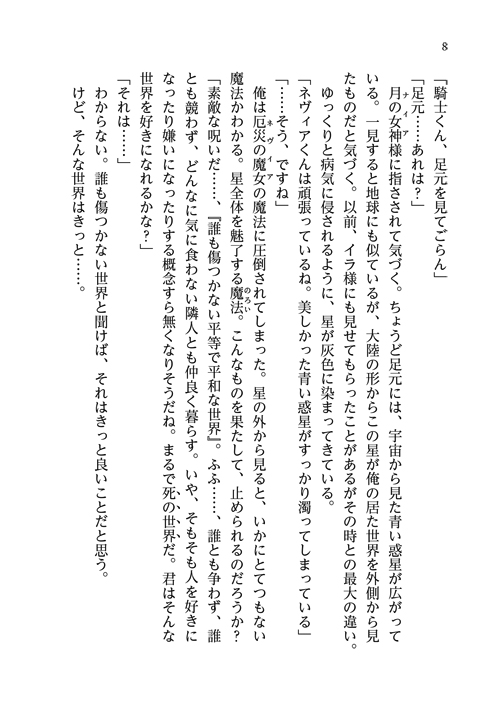 8
「騎士くん、足元を見てごらん」
「足元……あれは？」
　月の女神様に指さされて気づく。ちょうど足元には、宇宙から見た青い惑星が広がって
ナイア
いる。一見すると地球にも似ているが、大陸の形からこの星が俺の居た世界を外側から見
たものだと気づく。以前、イラ様にも見せてもらったことがあるがその時との最大の違い。
　ゆっくりと病気に侵されるように、星が灰色に染まってきている。
「ネヴィアくんは頑張っているね。美しかった青い惑星がすっかり濁ってしまっている」
「……そう、ですね」
　俺は厄災の魔女の魔法に圧倒されてしまった。星の外から見ると、いかにとてつもない
ネヴィア
魔法かわかる。星全体を魅了する魔法。こんなものを果たして、止められるのだろうか？
のろい
「素敵な呪いだ……、『誰も傷つかない平等で平和な世界』。ふふ……、誰とも争わず、誰
とも競わず、どんなに気に食わない隣人とも仲良く暮らす。いや、そもそも人を好きに
なったり嫌いになったりする概念すら無くなりそうだね。まるで死の世界だ。君はそんな
世界を好きになれるかな？」
「それは……」
　わからない。誰も傷つかない世界と聞けば、それはきっと良いことだと思う。
　けど、そんな世界はきっと……。